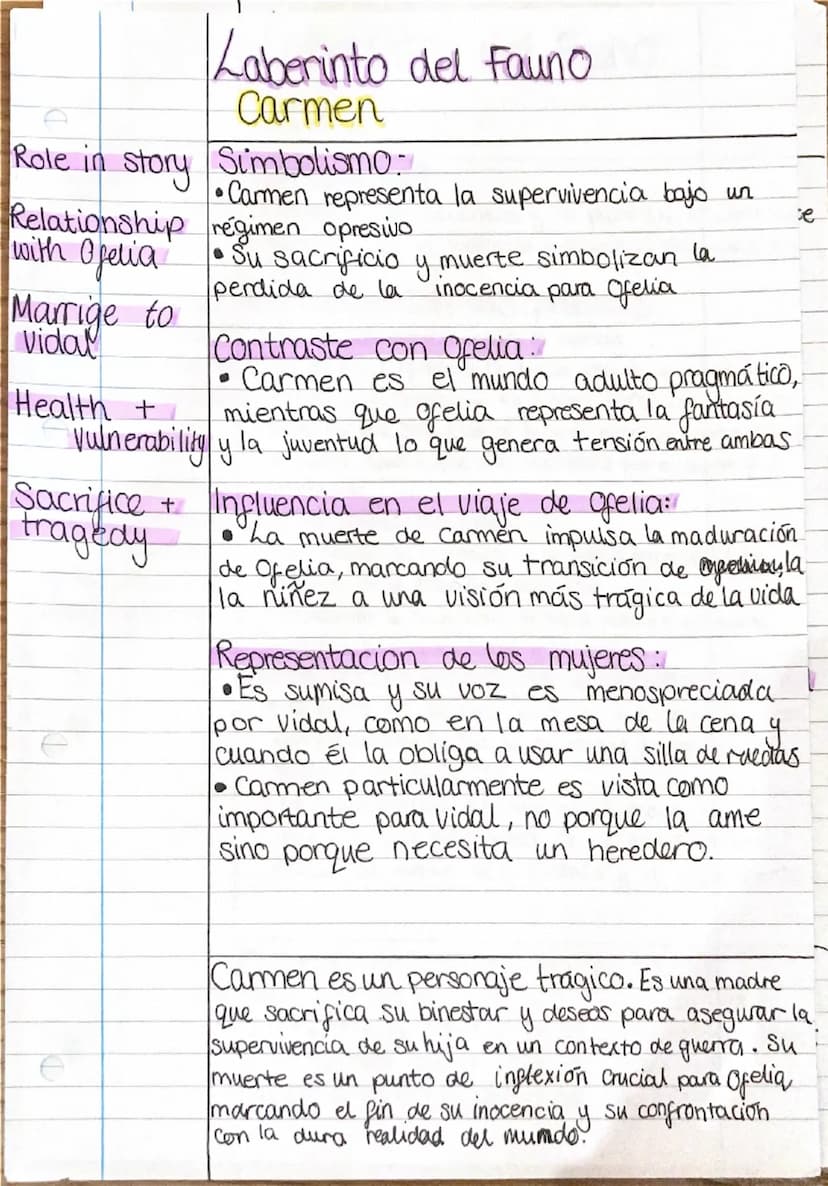 Laberinto del Fauno
Carmen
Role in story
Relationship
with Ofelia
Marrige to
vidal
Health +
Vulnerability
Sacrifice +
tragedy
Simbolismo:
• Carmen representa la supervivencia bajo un
régimen opresivo
• Su sacrificio y muerte simbolizan la
perdida de la inocencia para Ofelia
Contraste con Ofelia:
• Carmen es el mundo adulto pragmático,
mientras que Ofelia representa la fantasía
y la juventud lo que genera tensión entre ambas
Influencia en el viaje de Ofelia:
• La muerte de Carmen impulsa la maduración
de Ofelia, marcando su transición de la
la niñez a una visión más trágica de la vida
Representacion de los mujeres:
• Es sumisa y su voz es menospreciada
por vidal, como en la mesa de la cena y
cuando él la obliga a usar una silla de ruedas
• Carmen particularmente es vista como
importante para vidal, no porque la ame
sino porque necesita un heredero.
Carmen es un personaje trágico. Es una madre
que sacrifica su binestar y deseos para asegurar la
supervivencia de su hija en un contexto de guerra. Su
muerte es un punto de inflexión crucial para Ofelia,
marcando el fin de su inocencia y su confrontación
con la dura realidad del mundo.